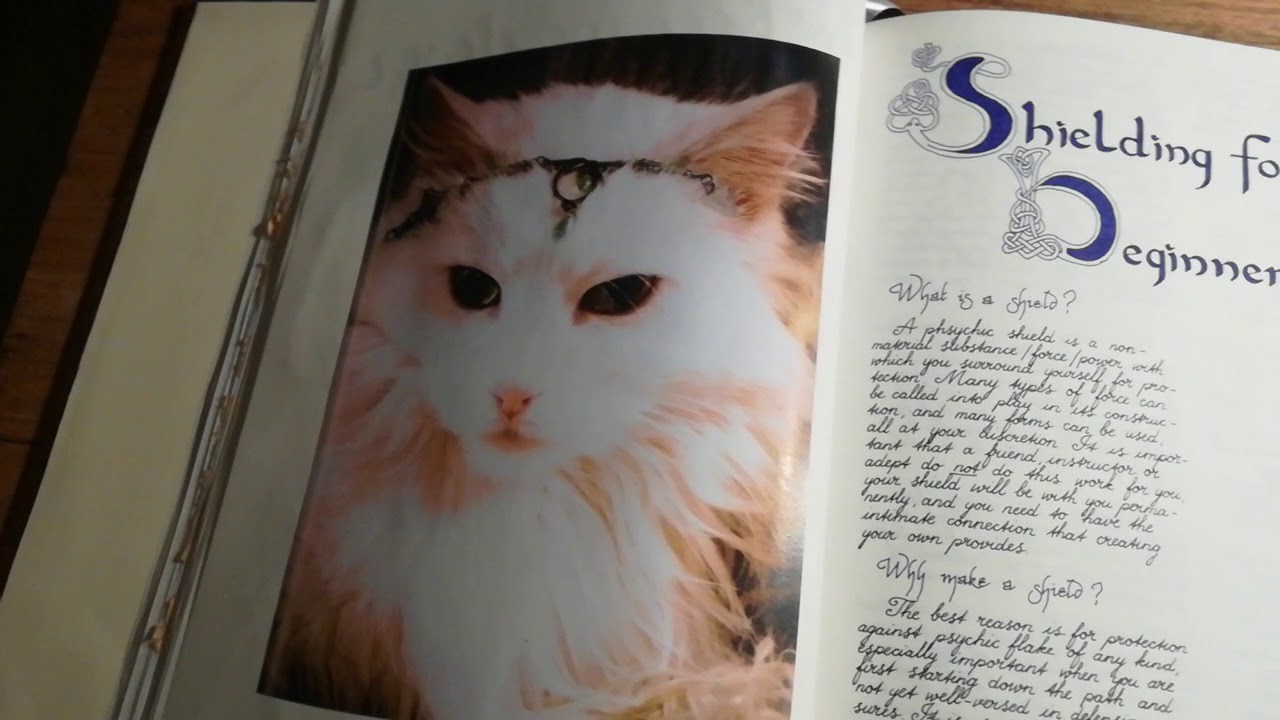 Shielding fo
Beginner
What is a shield?
A phsychic shield is a non-
material substance/force/power with
which you surround yourself for pro-
tection. Many types of force can
be called into play in its construc-
tion, and many forms can be used,
all at your discretion. It is impor-
tant that a friend, instructor, or
adept do not do this work for you,
your shield will be with you perma-
nently, and you need to have the
intimate connection that creating
your own provides.
Why make a shield?
The best reason is for protection
against psychic flake of any kind,
especially important when you are
first starting down the path and
not yet well-versed in
sures. It is